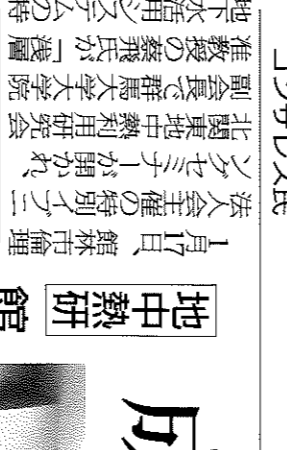 地中熱研
館
1月17日、館林市倫理
法人会主催の特別イブニ
ングセミナーが開かれ、
北関東地中熱利用研究会
副会長で群馬大学大学院
准教授の蔡飛氏が「浅層
地下水活用システムの特